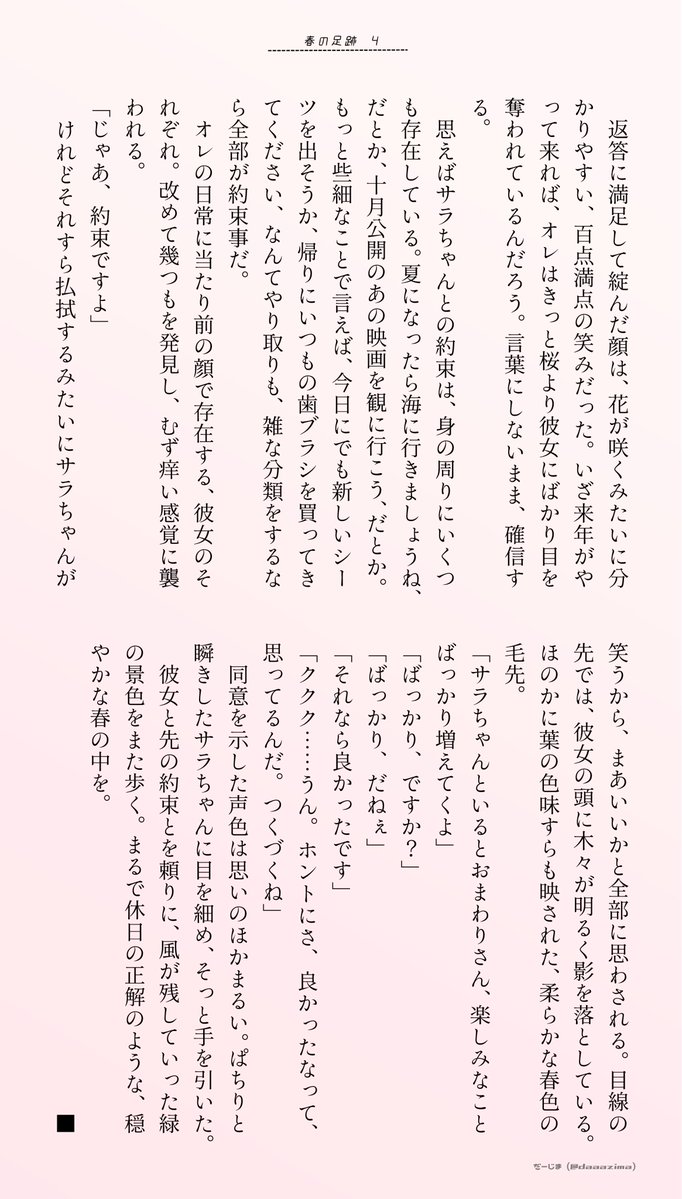 春の足跡　4
　返答に満足して綻んだ顔は、花が咲くみたいに分
かりやすい、百点満点の笑みだった。いざ来年がや
って来れば、オレはきっと桜より彼女にばかり目を
奪われているんだろう。言葉にしないまま、確信す
る。
　思えばサラちゃんとの約束は、身の周りにいくつ
も存在している。夏になったら海に行きましょうね、
だとか、十月公開のあの映画を観に行こう、だとか。
もっと些細なことで言えば、今日にでも新しいシー
ツを出そうか、帰りにいつもの歯ブラシを買ってき
てください、なんてやり取りも、雑な分類をするな
ら全部が約束事だ。
　オレの日常に当たり前の顔で存在する、彼女のそ
れぞれ。改めて幾つもを発見し、むず痒い感覚に襲
われる。
「じゃあ、約束ですよ」
　けれどそれすら払拭するみたいにサラちゃんが
笑うから、まあいいかと全部に思わされる。目線の
先では、彼女の頭に木々が明るく影を落としている。
ほのかに葉の色味すらも映された、柔らかな春色の
毛先。
「サラちゃんといるとおまわりさん、楽しみなこと
ばっかり増えてくよ」
「ばっかり、ですか？」
「ばっかり、だねぇ」
「それなら良かったです」
「ククク……うん。ホントにさ、良かったなって、
思ってるんだ。つくづくね」
　同意を示した声色は思いのほかまるい。ぱちりと
瞬きしたサラちゃんに目を細め、そっと手を引いた。
　彼女と先の約束とを頼りに、風が残していった緑
の景色をまた歩く。まるで休日の正解のような、穏
やかな春の中を。
■
だーじま（@daaazima）